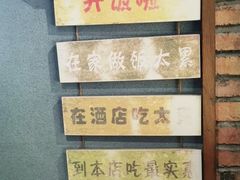 开饭啦
在家做饭太累
在酒店吃太
到本店吃最实